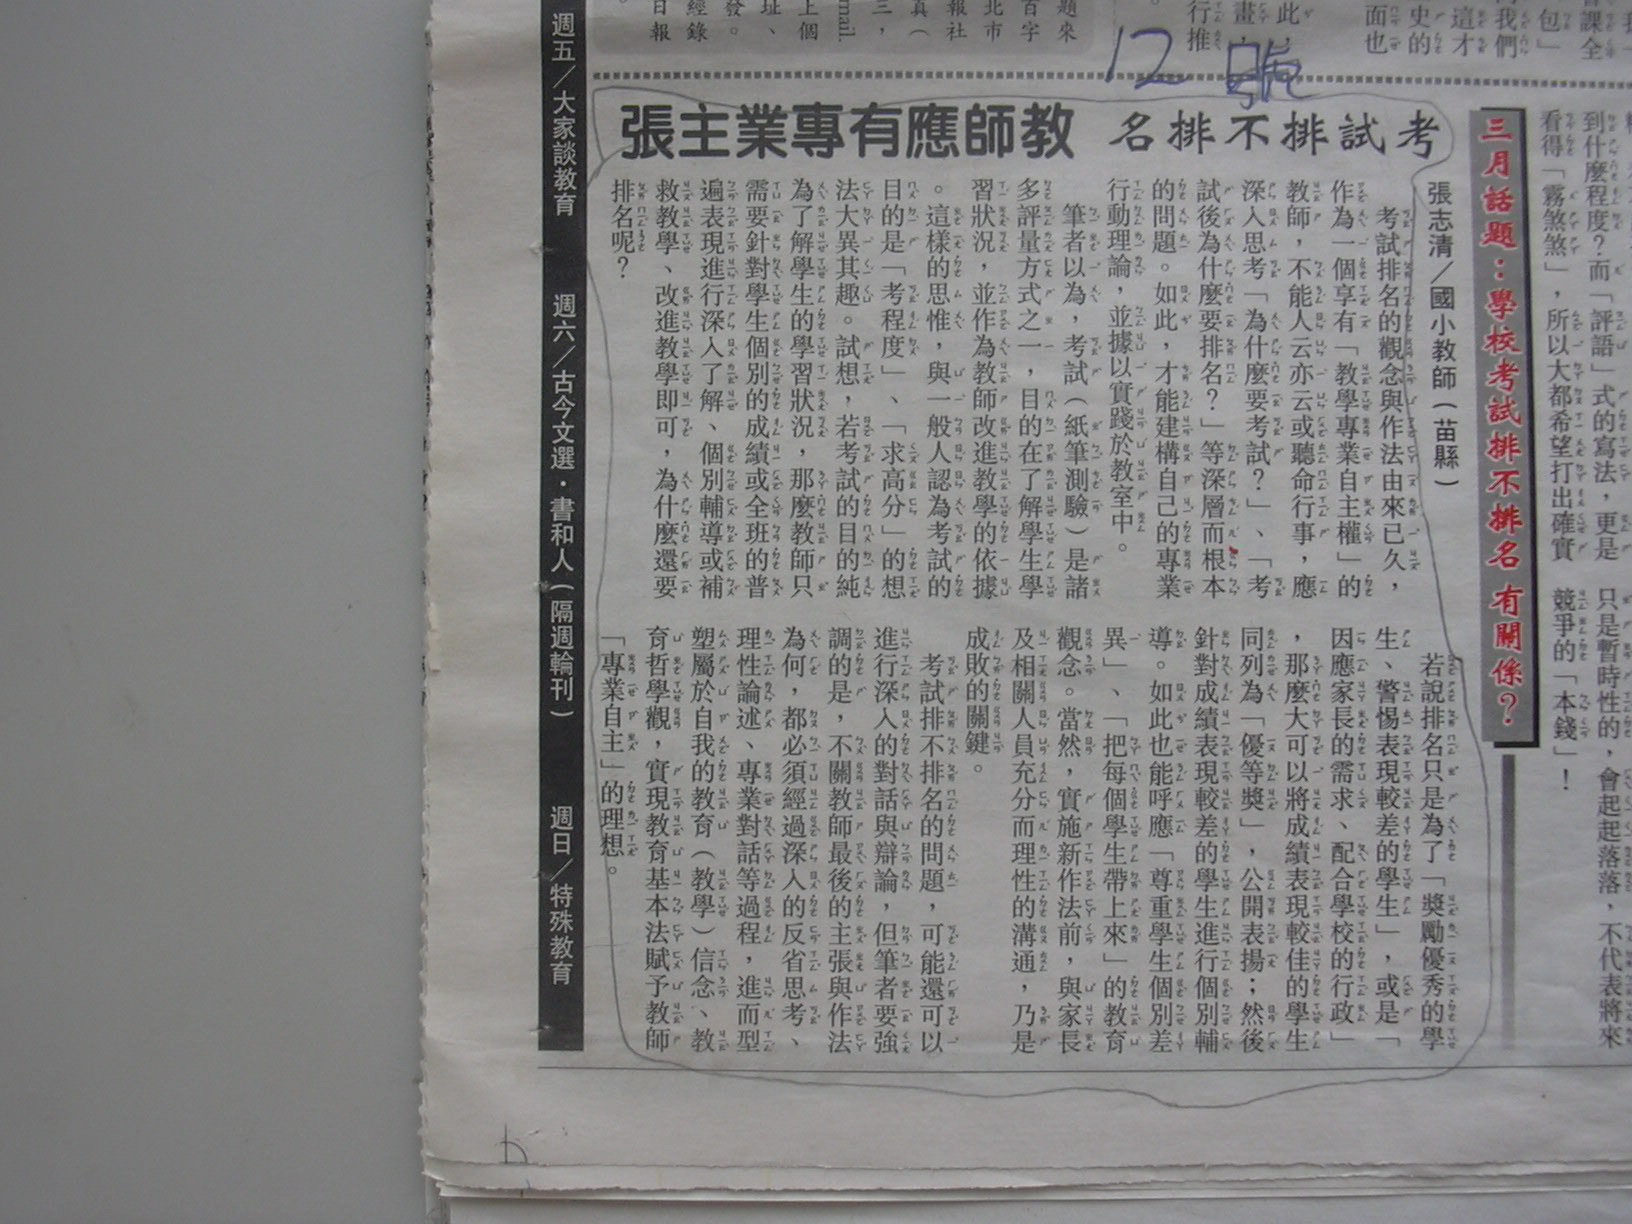 12號
考試排不排名 教師應有專業主張
張志清／國小教師（苗縣）
考試排名的觀念與作法由來已久，
作為一個享有「教學專業自主權」的
教師，不能人云亦云或聽命行事，應
深入思考「為什麼要考試？」、「考
試後為什麼要排名？」等深層而根本
的問題。如此，才能建構自己的專業
行動理論，並據以實踐於教室中。
筆者以為，考試（紙筆測驗）是諸
多評量方式之一，目的在了解學生學
習狀況，並作為教師改進教學的依據
。這樣的思惟，與一般人認為考試的
目的是「考程度」、「求高分」的想
法大異其趣。試想，若考試的目的純
為了解學生的學習狀況，那麼教師只
需要針對學生個別的成績或全班的普
遍表現進行深入了解、個別輔導或補
救教學、改進教學即可，為什麼還要
排名呢？
若說排名只是為了「獎勵優秀的學
生、警惕表現較差的學生」，或是「
因應家長的需求、配合學校的行政」
，那麼大可以將成績表現較佳的學生
同列為「優等獎」，公開表揚；然後
針對成績表現較差的學生進行個別輔
導。如此也能呼應「尊重學生個別差
異」、「把每個學生帶上來」的教育
觀念。當然，實施新作法前，與家長
及相關人員充分而理性的溝通，乃是
成敗的關鍵。
考試排不排名的問題，可能還可以
進行深入的對話與辯論，但筆者要強
調的是，不關教師最後的主張與作法
為何，都必須經過深入的反省思考、
理性論述、專業對話等過程，進而型
塑屬於自我的教育（教學）信念、教
育哲學觀，實現教育基本法賦予教師
「專業自主」的理想。
三月話題：學校考試排不排名 有關係？
到什麼程度？而「評語」式的寫法，更是
看得「霧煞煞」，所以大都希望打出確實
只是暫時性的，會起起落落，不代表將來
競爭的「本錢」！
週五／大家談教育 週六／古今文選・書和人（隔週輪刊） 週日／特殊教育